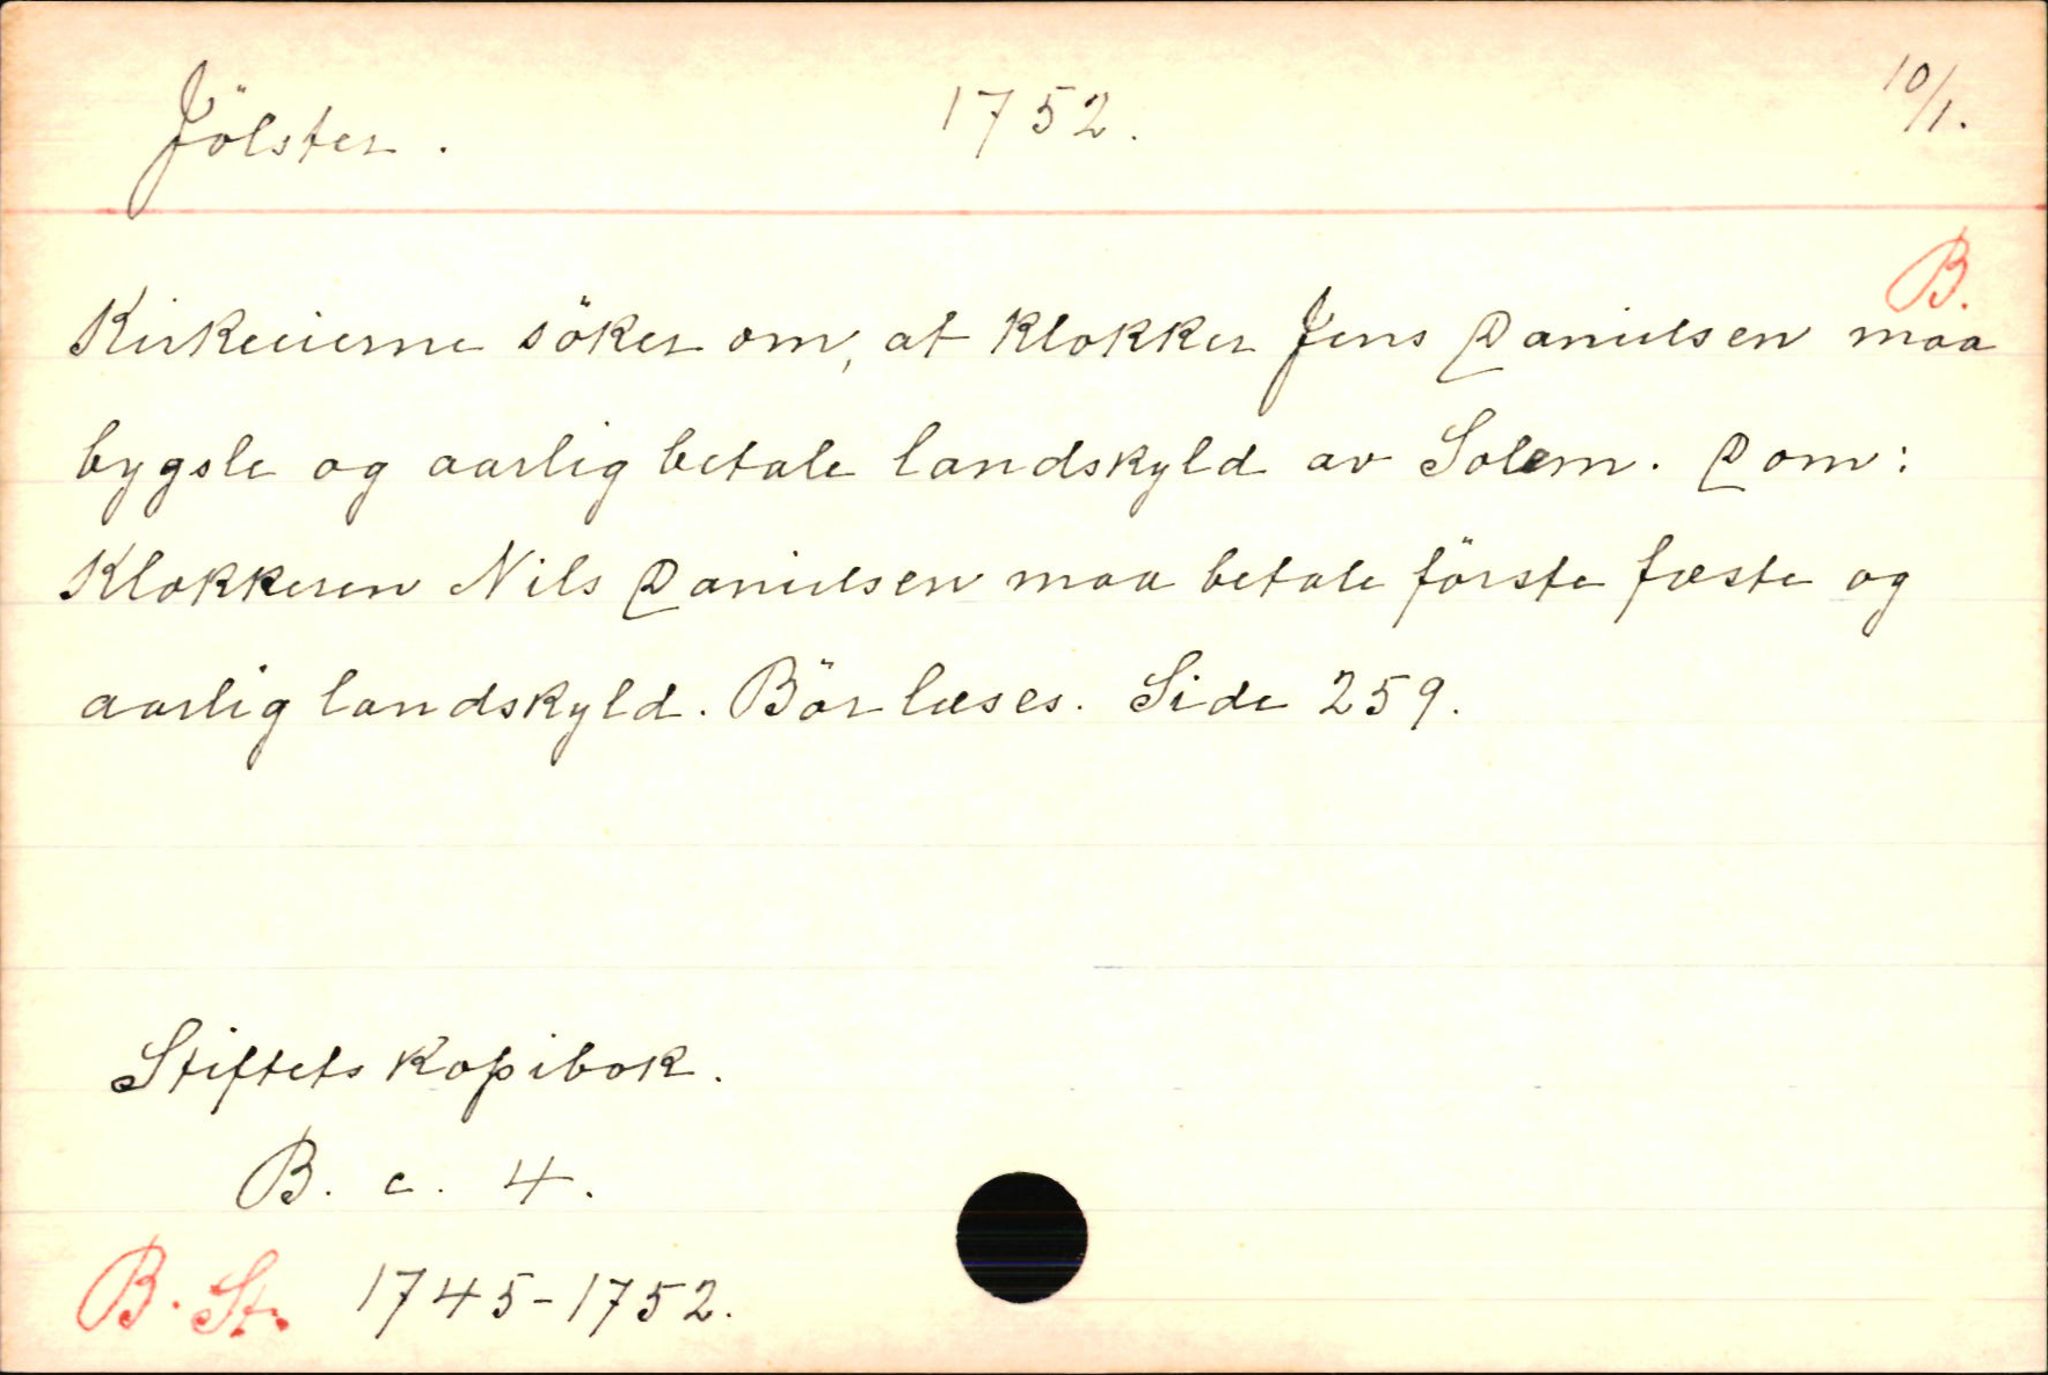 Jölster. 1752. 10/1.
B.
Kirkeeierne söker om, at klokker Jens Danielsen maa
bygsle og aarlig betale landskyld av Solem. Dom:
Klokkeren Nils Danielsen maa betale förste fæste og
aarlig landskyld. Bör læses. Side 259.
Stiftets kopibok.
B. c. 4.
B. St. 1745-1752.